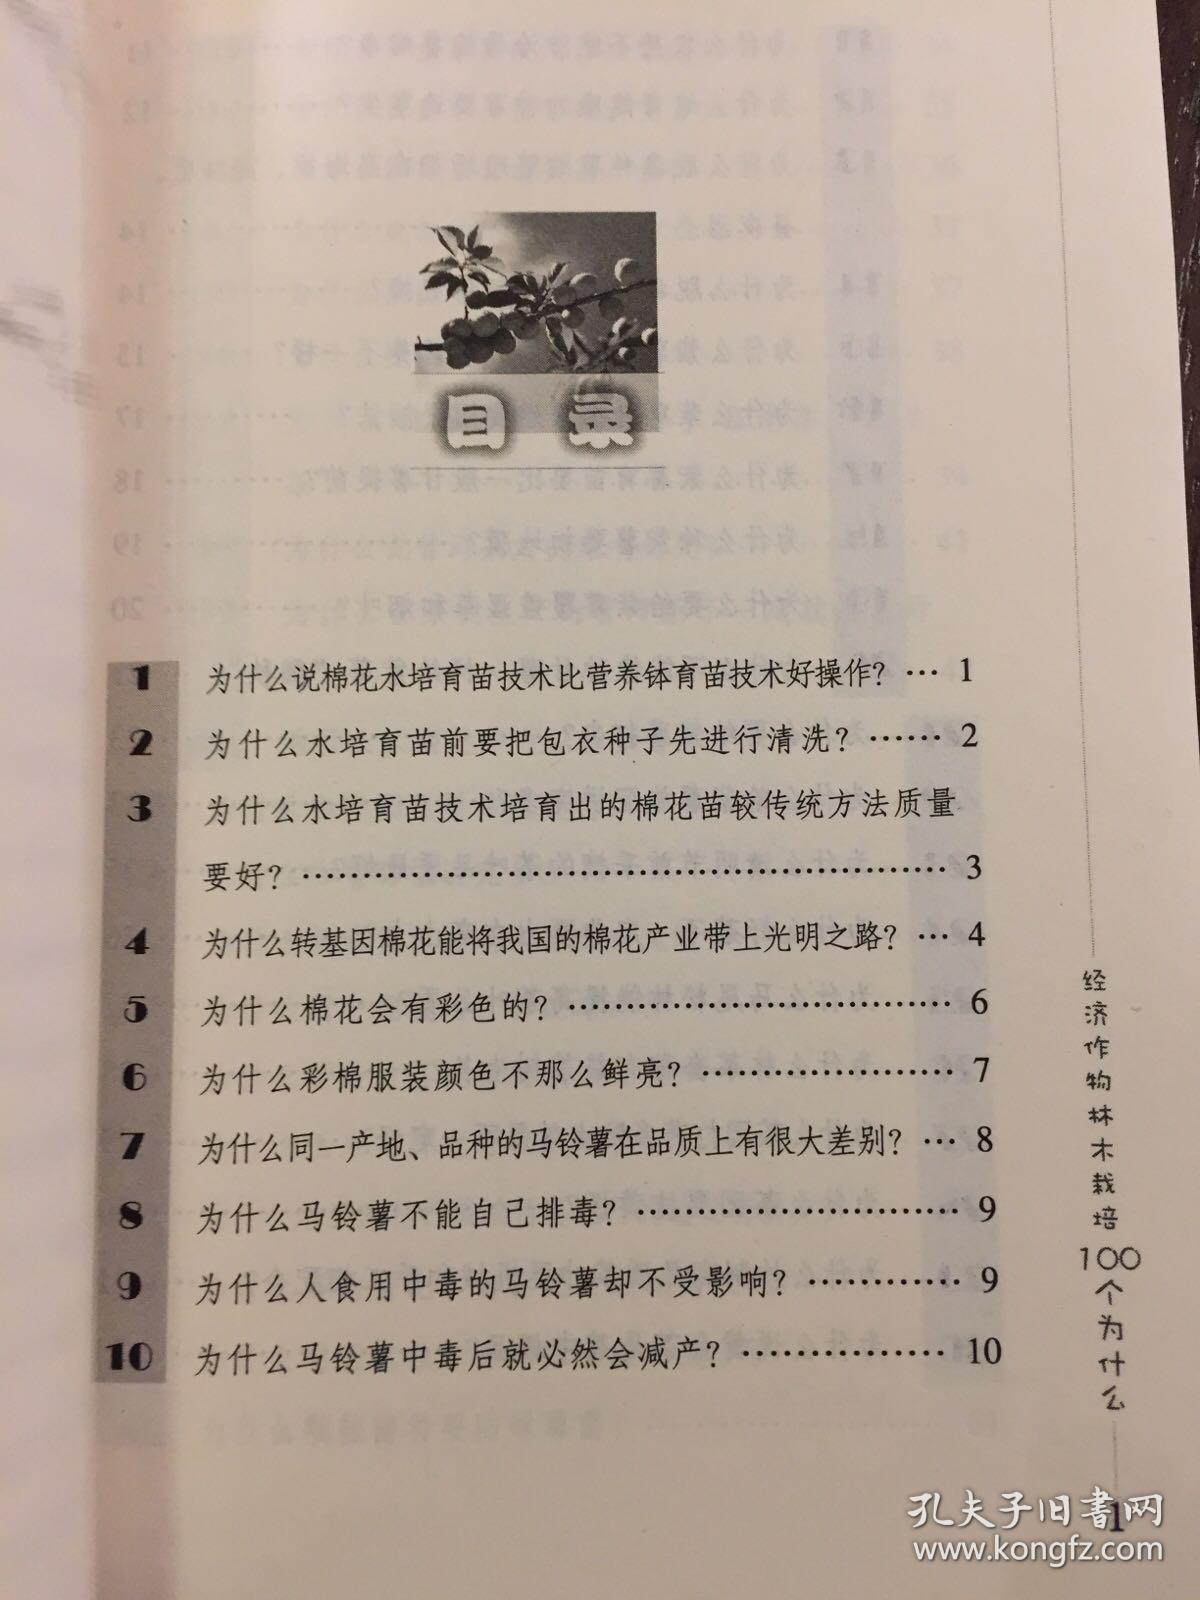 目 录
1 为什么说棉花水培育苗技术比营养钵育苗技术好操作？ … 1
2 为什么水培育苗前要把包衣种子先进行清洗？ …… 2
3 为什么水培育苗技术培育出的棉花苗较传统方法质量
要好？ ………………………………………………… 3
4 为什么转基因棉花能将我国的棉花产业带上光明之路？ … 4
5 为什么棉花会有彩色的？ …………………………… 6
6 为什么彩棉服装颜色不那么鲜亮？ ………………… 7
7 为什么同一产地、品种的马铃薯在品质上有很大差别？ … 8
8 为什么马铃薯不能自己排毒？ ……………………… 9
9 为什么人食用中毒的马铃薯却不受影响？ ………… 9
10 为什么马铃薯中毒后就必然会减产？ …………… 10
经济作物林木栽培100个为什么
1
孔夫子旧书网
www.kongfz.com